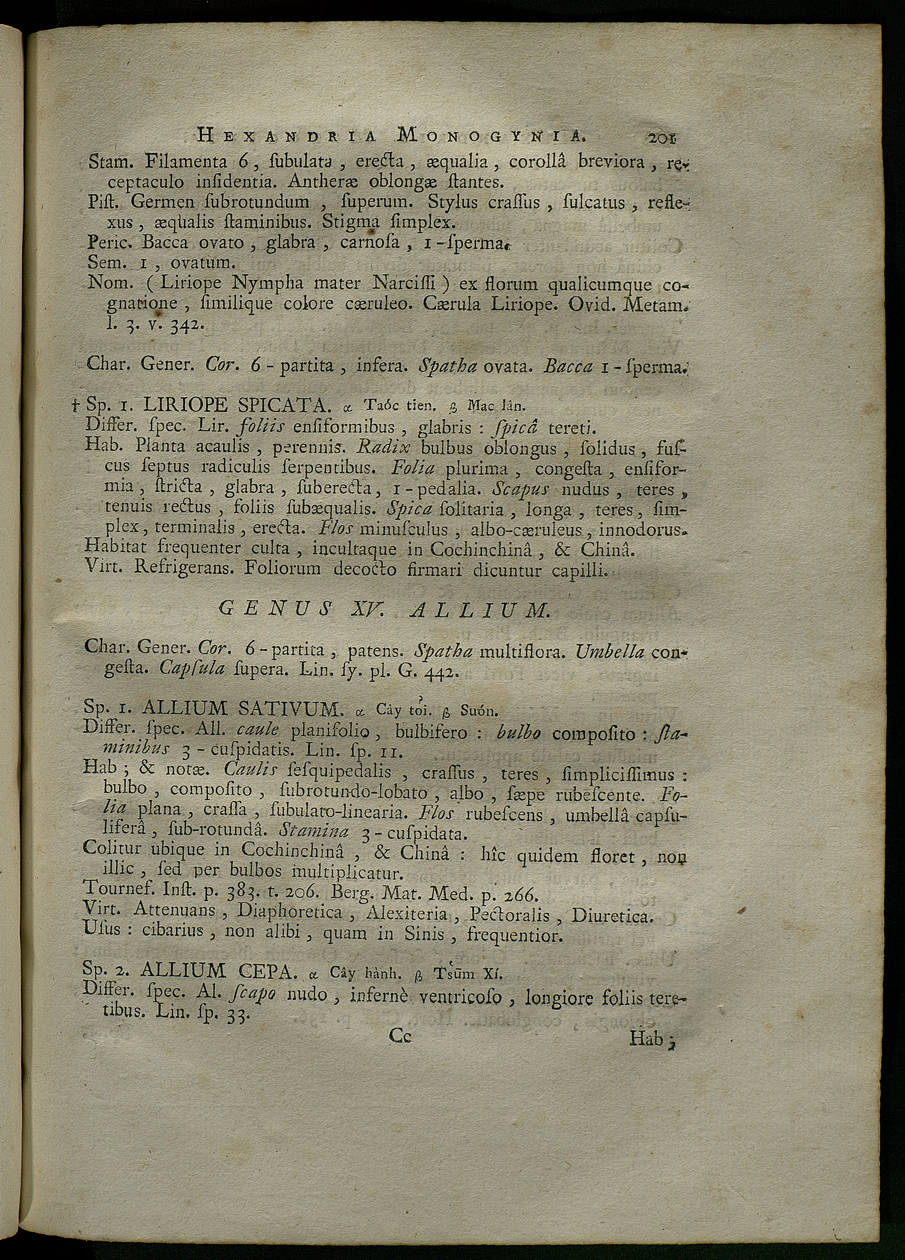 HEXANDRIA MONOGYNIA. 201
Stam. Filamenta 6, ſubulata, erecta, æqualia, corollâ breviora, re-
ceptaculo inſidentia. Antheræ oblongæ ſtantes.
Piſt. Germen ſubrotundum, ſuperum. Stylus craſſus, ſulcatus, refle-
xus, æqualis ſtaminibus. Stigma ſimplex.
Peric. Bacca ovato, glabra, carnoſa, 1-ſperma.
Sem. 1, ovatum.
Nom. (Liriope Nympha mater Narciſſi) ex florum qualicumque co-
gnatione, ſimilique colore cæruleo. Cærula Liriope. Ovid. Metam.
l. 3. v. 342.
Char. Gener. Cor. 6-partita, infera. Spatha ovata. Bacca 1-ſperma.
† Sp. 1. LIRIOPE SPICATA. α Taóc tien. β Mac lân.
Differ. ſpec. Lir. foliis enſiformibus, glabris: ſpicâ tereti.
Hab. Planta acaulis, perennis. Radix bulbus oblongus, ſolidus, fuſ-
cus ſeptus radiculis ſerpentibus. Folia plurima, congeſta, enſifor-
mia, ſtricta, glabra, ſuberecta, 1-pedalia. Scapus nudus, teres,
tenuis rectus, foliis ſubæqualis. Spica ſolitaria, longa, teres, ſim-
plex, terminalis, erecta. Flos minuſculus, albo-cæruleus, innodorus.
Habitat frequenter culta, incultaque in Cochinchinâ, & Chinâ.
Virt. Refrigerans. Foliorum decocto firmari dicuntur capilli.
GENUS XV. ALLIUM.
Char. Gener. Cor. 6-partita, patens. Spatha multiflora. Umbella con-
geſta. Capſula ſupera. Lin. ſy. pl. G. 442.
Sp. 1. ALLIUM SATIVUM. α Cây tỏi. β Suón.
Differ. ſpec. All. caule planifolio, bulbifero: bulbo compoſito: ſta-
minibus 3-cuſpidatis. Lin. ſp. 11.
Hab; & notæ. Caulis ſeſquipedalis, craſſus, teres, ſimpliciſſimus:
bulbo, compoſito, ſubrotundo-lobato, albo, ſæpe rubeſcente. Fo-
lia plana, craſſa, ſubulato-linearia. Flos rubeſcens, umbellâ capſu-
liferâ, ſub-rotundâ. Stamina 3-cuſpidata.
Colitur ubique in Cochinchinâ, & Chinâ: hîc quidem floret, non
illic, ſed per bulbos multiplicatur.
Tournef. Inſt. p. 383. t. 206. Berg. Mat. Med. p. 266.
Virt. Attenuans, Diaphoretica, Alexiteria, Pectoralis, Diuretica.
Uſus: cibarius, non alibi, quam in Sinis, frequentior.
Sp. 2. ALLIUM CEPA. α Cây hành. β Tsũm Xí.
Differ. ſpec. Al. ſcapo nudo, infernè ventricoſo, longiore foliis tere-
tibus. Lin. ſp. 33.
Cc Hab;